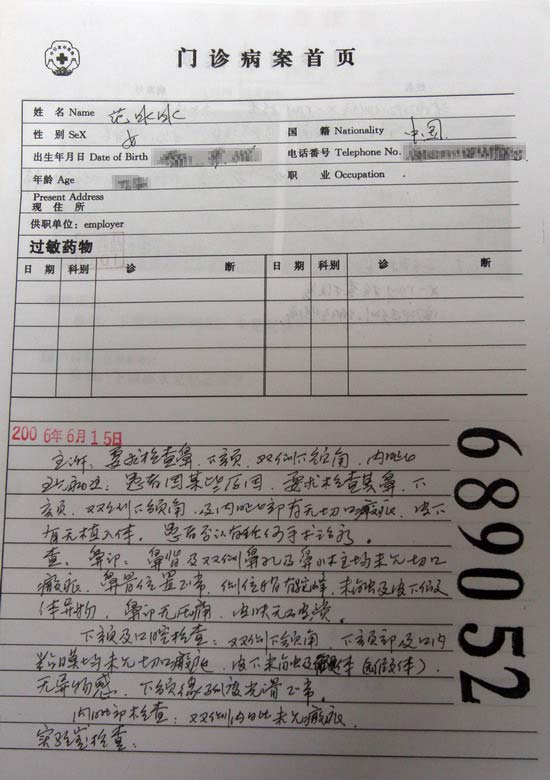 门诊病案首页
姓 名 Name 范冰冰
性 别 SeX 女 国 籍 Nationality 中国
出生年月日 Date of Birth 电话番号 Telephone No.
年龄 Age 职 业 Occupation
Present Address
现 住 所
供职单位: employer
过敏药物
日 期 科别 诊 断 日 期 科别 诊 断
2006年6月15日
689052
主诉: 要求检查鼻、下颏、双侧下颌角、内眦部
患者因某些原因, 要求检查其鼻、下
颏、双侧下颌角、及内眦部有无切口瘢痕、皮下
有无植入体。患者否认有任何手术诊疗。
查: 鼻部、鼻背及双侧鼻孔及鼻小柱均未见切口
瘢痕, 鼻骨位置正常, 侧位稍有驼峰, 未触及皮下假
体异物, 鼻部无压痛, 皮肤无
下颏及口腔检查: 双侧下颌角、下颏部及口内
粘膜均未见切口瘢痕, 皮下未触及 体(假体)。
无异物感, 下颌缘 光滑正常。
内眦部检查: 双侧内眦未见瘢痕
实验室检查: